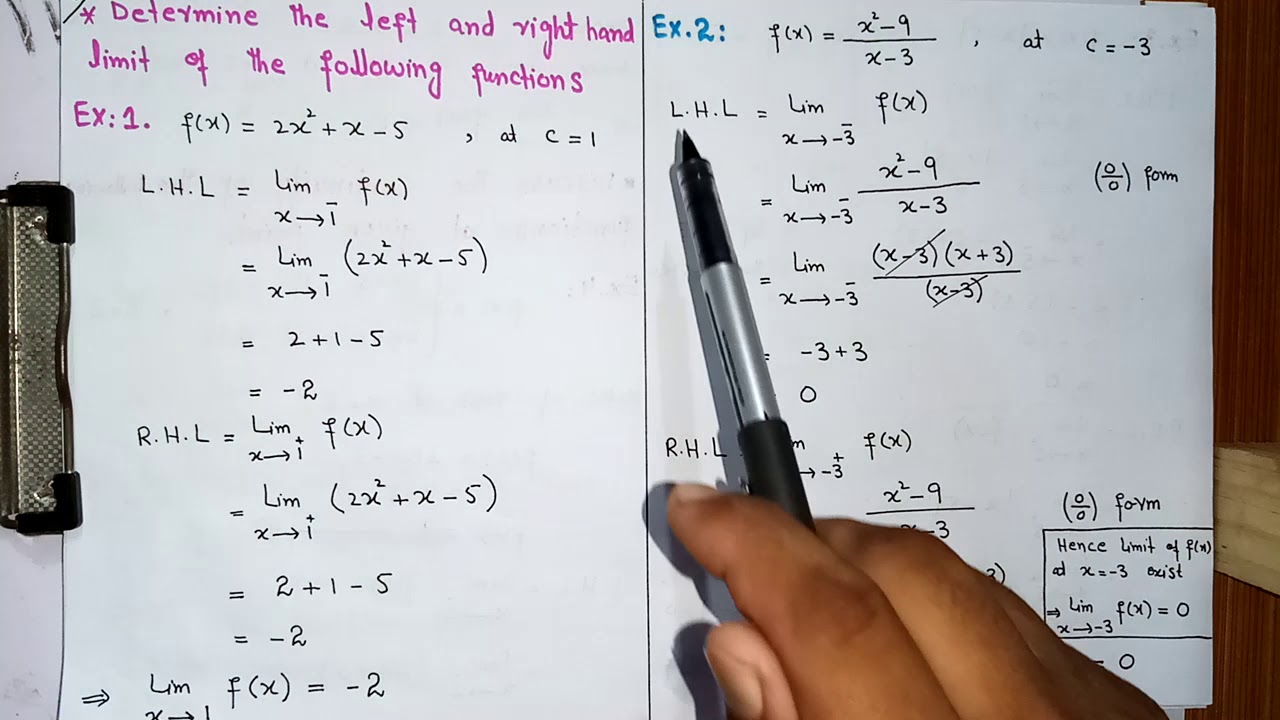 * Determine the left and right hand
limit of the following functions
Ex:1. f(x) = 2x² + x - 5 , at c = 1
L.H.L = Lim f(x)
x→1⁻
= Lim (2x² + x - 5)
x→1⁻
= 2 + 1 - 5
= -2
R.H.L = Lim f(x)
x→1⁺
= Lim (2x² + x - 5)
x→1⁺
= 2 + 1 - 5
= -2
⇒ Lim f(x) = -2
x→1
Ex.2: f(x) = x² - 9 , at c = -3
x - 3
L.H.L = Lim f(x)
x→-3⁻
= Lim x² - 9 (0/0) form
x→-3⁻ x - 3
= Lim (x-3)(x+3)
x→-3⁻ (x-3)
= -3 + 3
0
R.H.L f(x)
→-3⁺
x² - 9 (0/0) form
- 3
Hence limit of f(x)
at x = -3 exist
⇒ Lim f(x) = 0
x→-3
= 0